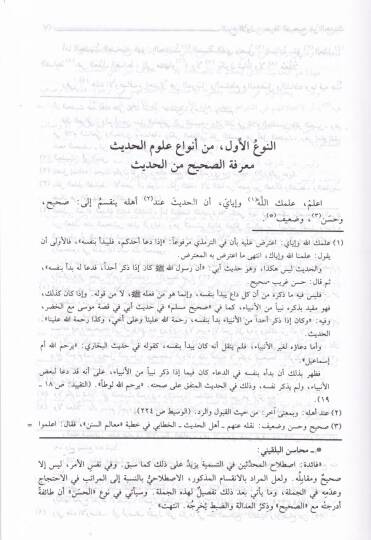 النوعُ الأول، من أنواع علوم الحديث
معرفة الصحيح من الحديث
اعلم، علمك اللَّهُ(١) وإيايَ، أن الحديثَ عند(٢) أهله ينقسمُ إلى: صحيح،
وحسَن(٣)، وضعيف(٥).
(١) علمك الله وإياي: اعترض عليه بأن في الترمذي مرفوعاً: «إذا دعا أحدكم، فليبدأ بنفسه»، فالأولى أن
يقول: علمنا الله وإياك، انتهى ما اعترض به المعترض.
والحديث ليس هكذا، وهو حديث أبي: «أن رسول الله ﷺ كان إذا ذكر أحداً، فدعا له بدأ بنفسه»،
ثم قال: حسن غريب صحيح.
فليس فيه ما ذكره من أن كل داع يبدأ بنفسه، وإنما هو من فعله ﷺ، لا من قوله. وإذا كان كذلك،
فهو مقيد بذكره نبياً من الأنبياء، كما في «صحيح مسلم» في حديث أبي في قصة موسى مع الخضر،
وفيه: «وكان إذا ذكر أحداً من الأنبياء بدأ بنفسه، رحمة الله علينا وعلى أخي، وكذا رحمة الله علينا».
الحديث.
وأما دعاؤه لغير الأنبياء، فلم ينقل أنه كان يبدأ بنفسه، كقوله في حديث البخاري: «يرحم الله أم
إسماعيل».
فظهر بذلك أن بدأه بنفسه في الدعاء كان فيما إذا ذكر نبياً من الأنبياء، على أنه قد دعا لبعض
الأنبياء، ولم يذكر نفسه، وذلك في الحديث المتفق على صحته. «يرحم الله لوطاً». (التقييد: ص ١٨ ـ
١٩).
(٢) عند أهله: وبمعنى آخر: من حيث القبول والرد. (الوسيط ص ٢٢٤)
(٣) صحيح وحسن وضعيف: نقله عنهم ـ أهل الحديث ـ الخطابي في خطبة «معالم السنن»، فقال: اعلموا =
* ـ محاسن البلقيني:
«فائدة: اصطلاح المحدِّثين في التسمية يزيدُ على ذلك كما سبق. وفي نفس الأمر، ليس إلا
صحيحٌ ومقابِلُه. ولعل المراد بالانقسام المذكور، الاصطلاحيُّ بالنسبة إلى المراتب في الاحتجاج
وعدَمِه في الجملة، وما يأتي بعد ذلك تفصيلٌ لهذه الجملة. وسيأتي في نوع «الحسَن» أن طائفةً
أدرجتْه مع «الصحيح» وذكرُ العدالة والضبط يُخرِجُه. انتهت»